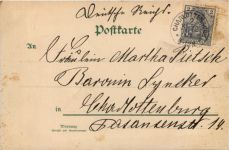 Deutsche Reichs
Postkarte
An
Fräulein Martha
Baronin Lyncker
in Charlottenburg
Fasanenstr. 14.